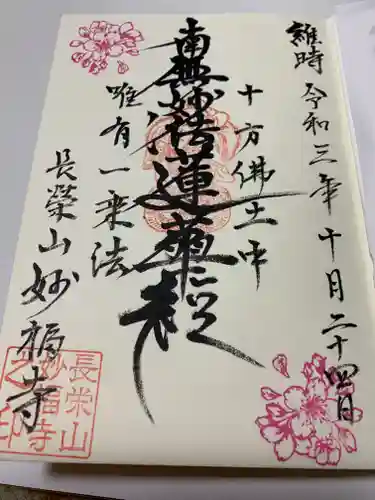 維時 令和三年十月二十四日
十方佛土中
南無妙法蓮華経
唯有一乗法
長榮山妙福寺
長栄山
妙福寺
之印